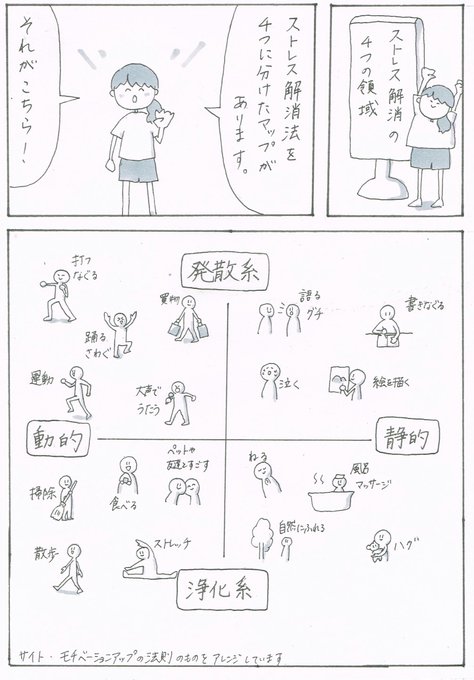 ストレス解消の
4つの領域
ストレス解消法を
4つに分けたマップが
あります。
それがこちら!
発散系
打つ
なぐる
買物
踊る
さわぐ
運動
大声で
うたう
語る
グチ
書きなぐる
泣く
絵を描く
動的
静的
掃除
食べる
ペットや
友達とすごす
散歩
ストレッチ
ねる
風呂
マッサージ
自然にふれる
ハグ
浄化系
サイト・モチベーションアップの法則のものをアレンジしています